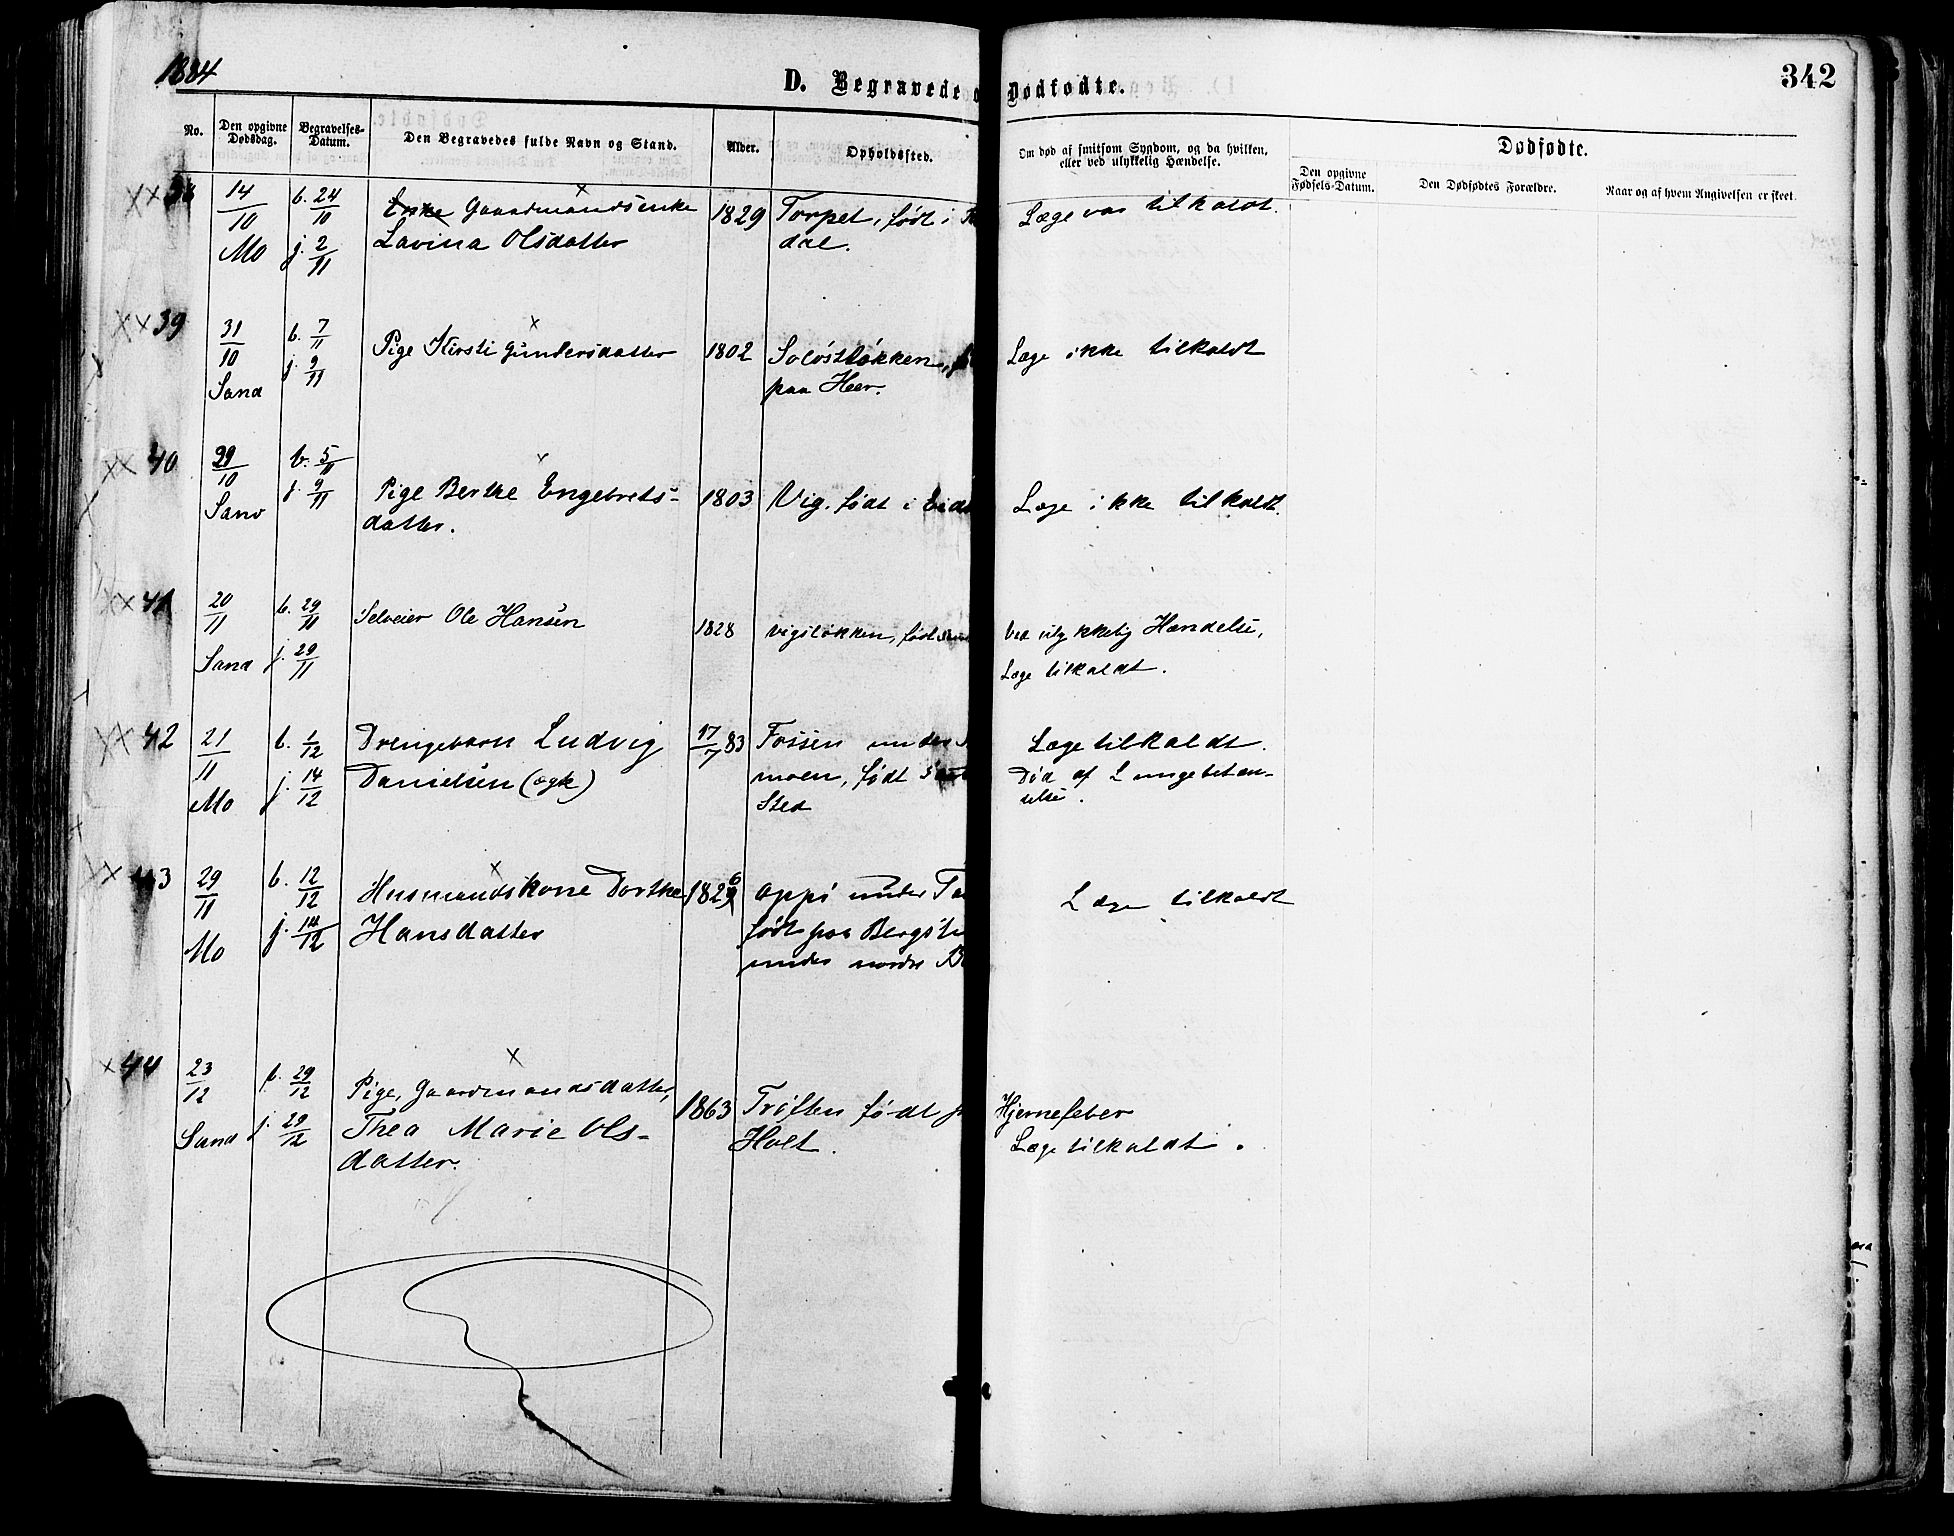 1884
D. Begravede o
Dødfødte.
342
No.
Den opgivne Dødsdag.
Begravelses-Datum.
Den Begravedes fulde Navn og Stand.
Alder.
Opholdssted.
Om død af smitsom Sygdom, og da hvilken, eller ved ulykkelig Hændelse.
Dødfødte.
Den opgivne Fødsels-Datum.
Den Dødfødtes Forældre.
Naar og af hvem Angivelsen er skeet.
14/10 b. 24/10 Enke Gaardmandsenke 1829 Torpet, født i Læge var tilkaldt.
Mo j. 2/11 Lavina Olsdatter dal.
xx 39 31/10 b. 7/11 Pige Kirsti Gundersdatter 1802 Soløstløkken, Læge ikke tilkaldt
Sand j. 9/11 paa Heer.
xx 40 29/10 b. 5/11 Pige Berthe Engebrets- 1803 Vig. født i Eids Læge ikke tilkaldt.
Sand j. 9/11 datter.
xx 41 20/11 b. 29/11 Selveier Ole Hansen 1828 Vigsløkken, født Ved ulykkelig Hændelse,
Sand j. 29/11 Læge tilkaldt.
xx 42 21/11 b. 1/12 Drengebarn Ludvig 17/7 83 Fossen under Læge tilkaldt.
Mo j. 14/12 Danielsen (ægte) moen, født Død af Lungebetæn-
Sted else.
xx 43 29/11 b. 12/12 Husmandskone Dorthe 1826 oppi under Læge tilkaldt
Mo j. 14/12 Hansdatter født paa
under nordre
x 44 23/12 b. 29/12 Pige, Gaardmandsdatter, 1863 Trøften født p Hjernefeber
Sand j. 29/12 Thea Marie Ols- Holt. Læge tilkaldt.
datter.